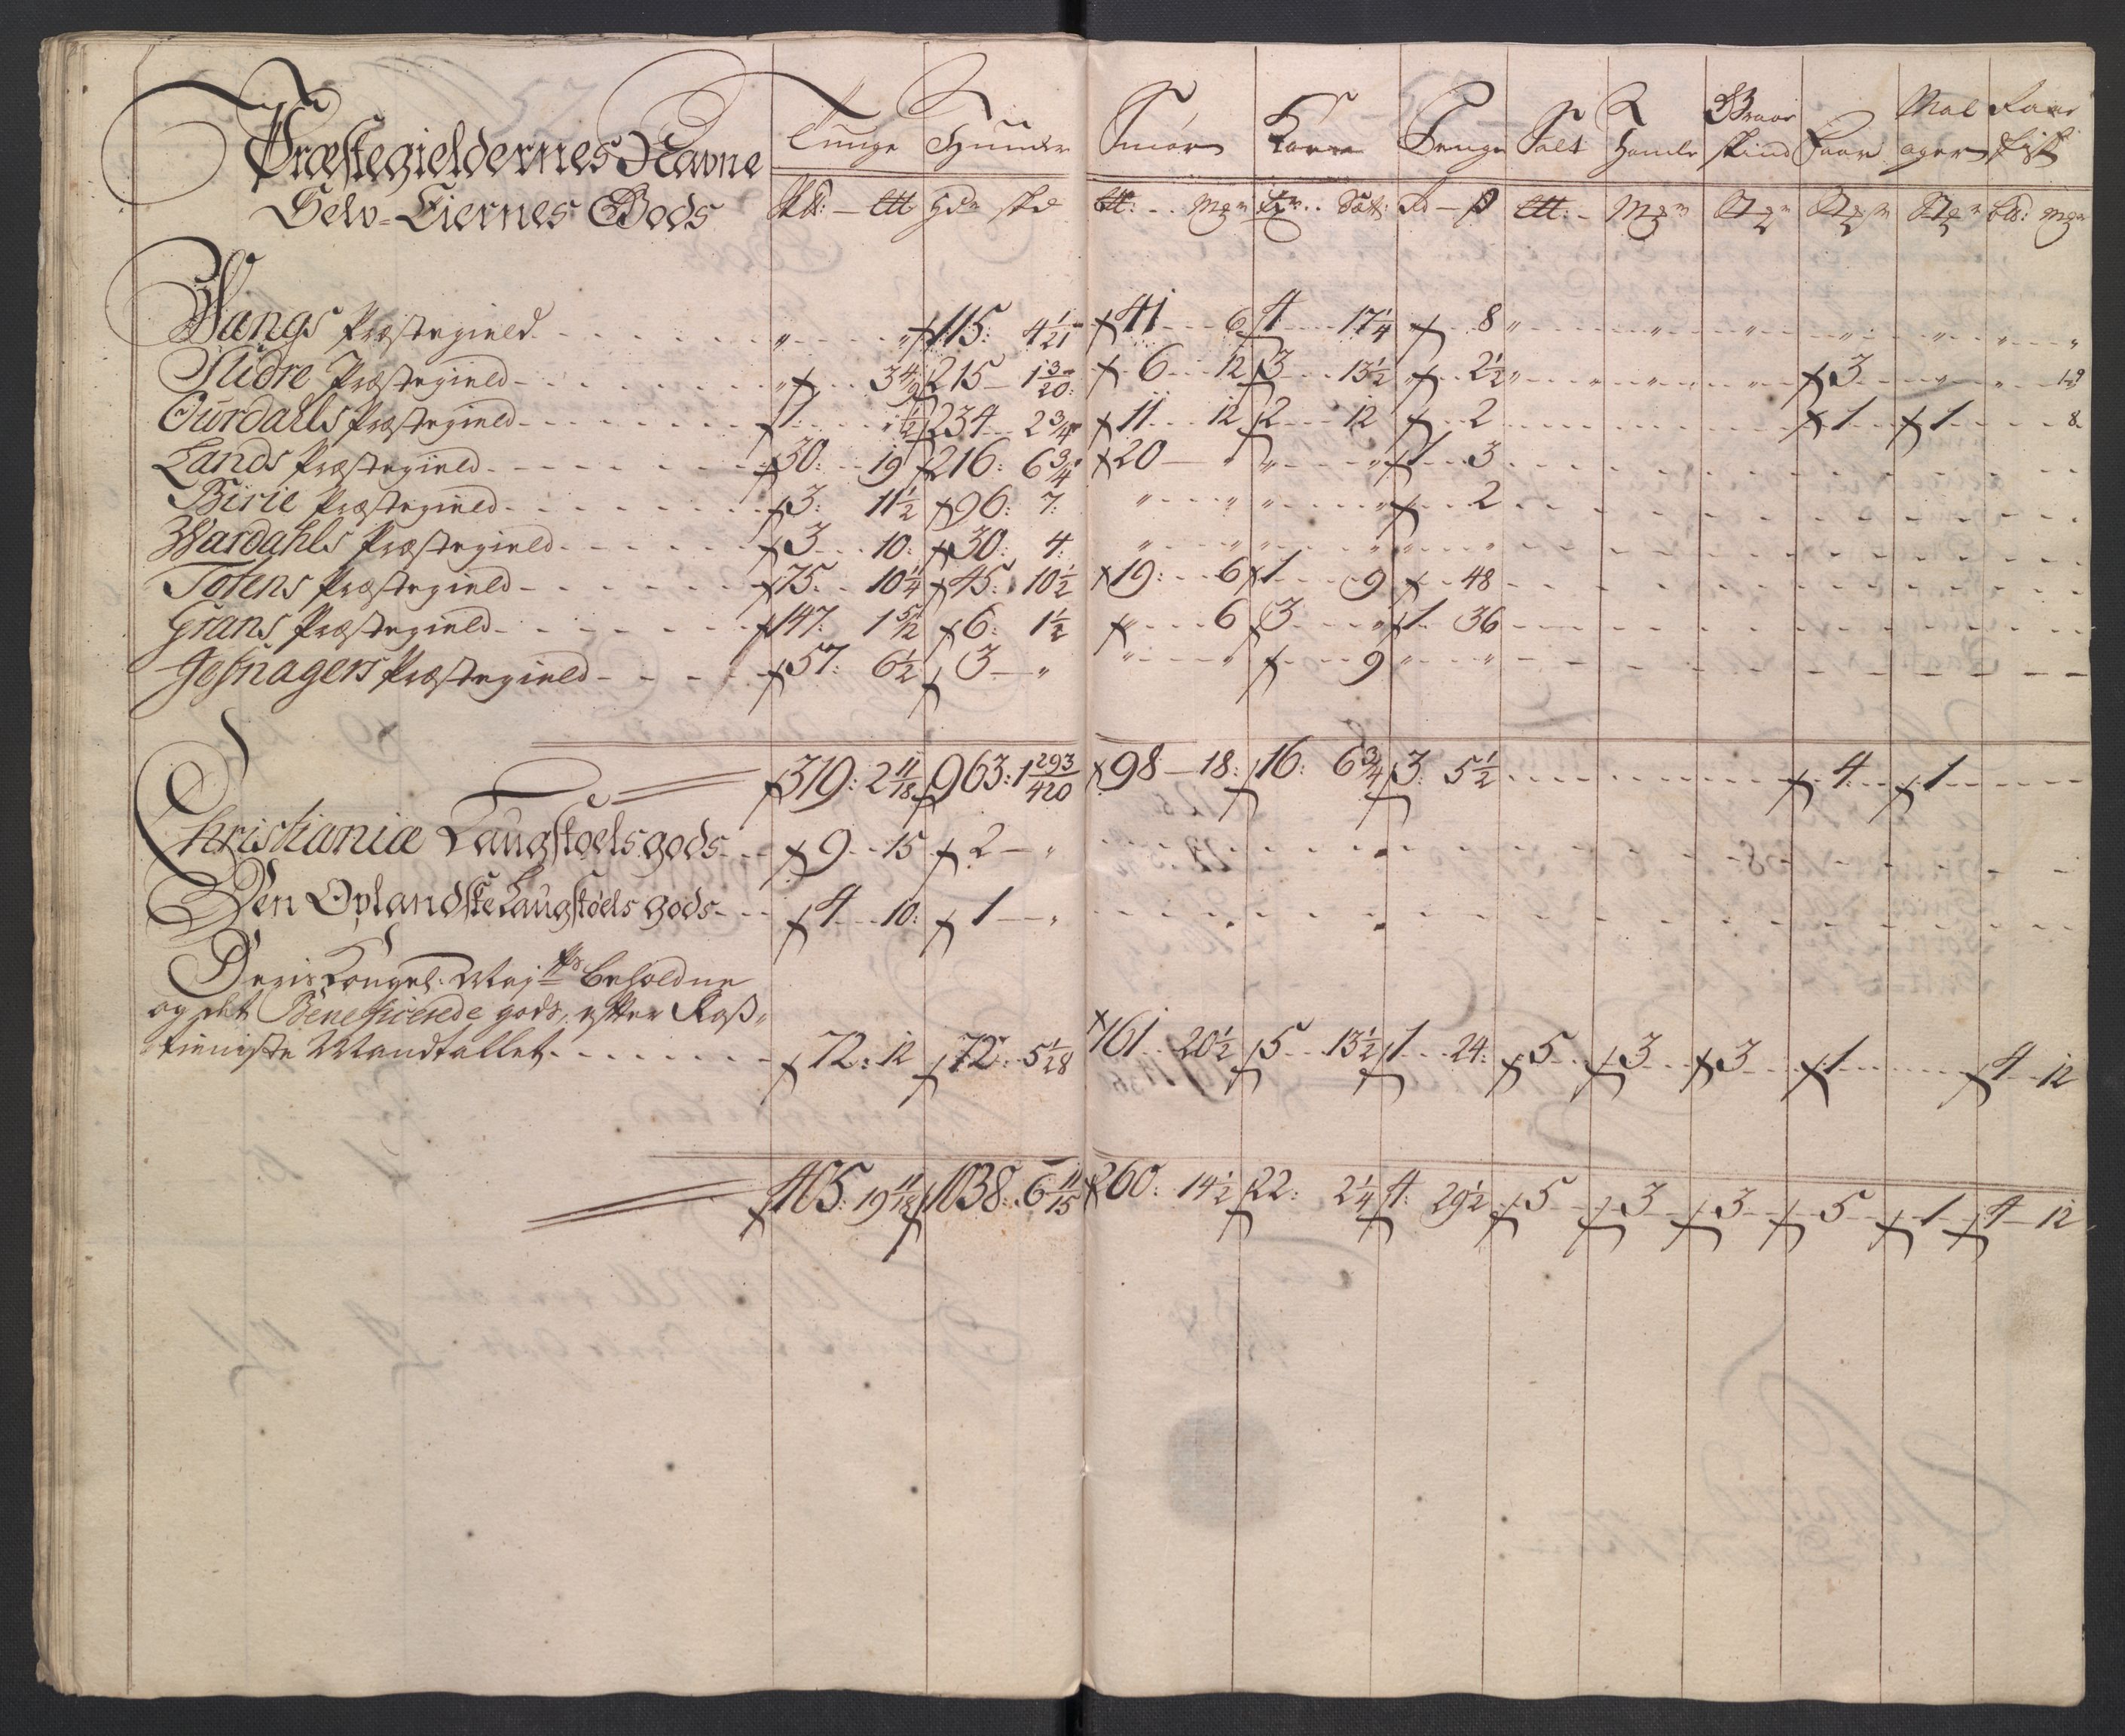 Præstegieldernes Navne Tunge Huuder Smør Korn Penge Salt Homle Skind Faar Mal ager Fisk
Selv-Eiernes Gods
Wangs Præstegield " " 115: 4 1/21 41 6 4 17 1/4 8
Slidre Præstegield " 3 4/9 215 1 3/20: 6 12 3 13 1/2 2 1/2 3
Ourdahls Præstegield 1 1/2 234 2 3/4 11 12 2 12 2 1 1 8
Lands Præstegield 30: 19 216: 6 3/4 20 " " " 1 3
Birie Præstegield 3: 11 1/2 96: 7: " " " " 2
Wardahls Præstegield 3 10: 30: 4: " " " " " "
Totens Præstegield 75 10 1/4 45: 10 1/2 19: 6 1 9 48
Grans Præstegield 147: 1 5/12 6: 1 1/2 6 3 " 1 36
Jefnagers Præstegield 57: 6 1/2 3 " " " 9 " "
319: 2 11/18 963: 1 293/420 98 18: 16: 6 3/4 3: 5 1/2 4 1
Christianiæ Laugstoels gods 9 15 2 "
Den Oplandske Laugstoels gods 4 10: 1 "
Deris Kongel: Maj:ts beholdne
og det Beneficerede gods, efter Roß-
tieniste Mandtallet 72: 12 72: 5 1/28 161 20 1/2 5 13 1/2 1 24: 5 3 3 1 4 12
405: 19 11/18 1038: 6 11/15 260: 14 1/2 22: 2 1/4 4: 29 1/2 5 3 3 5 1 4 12